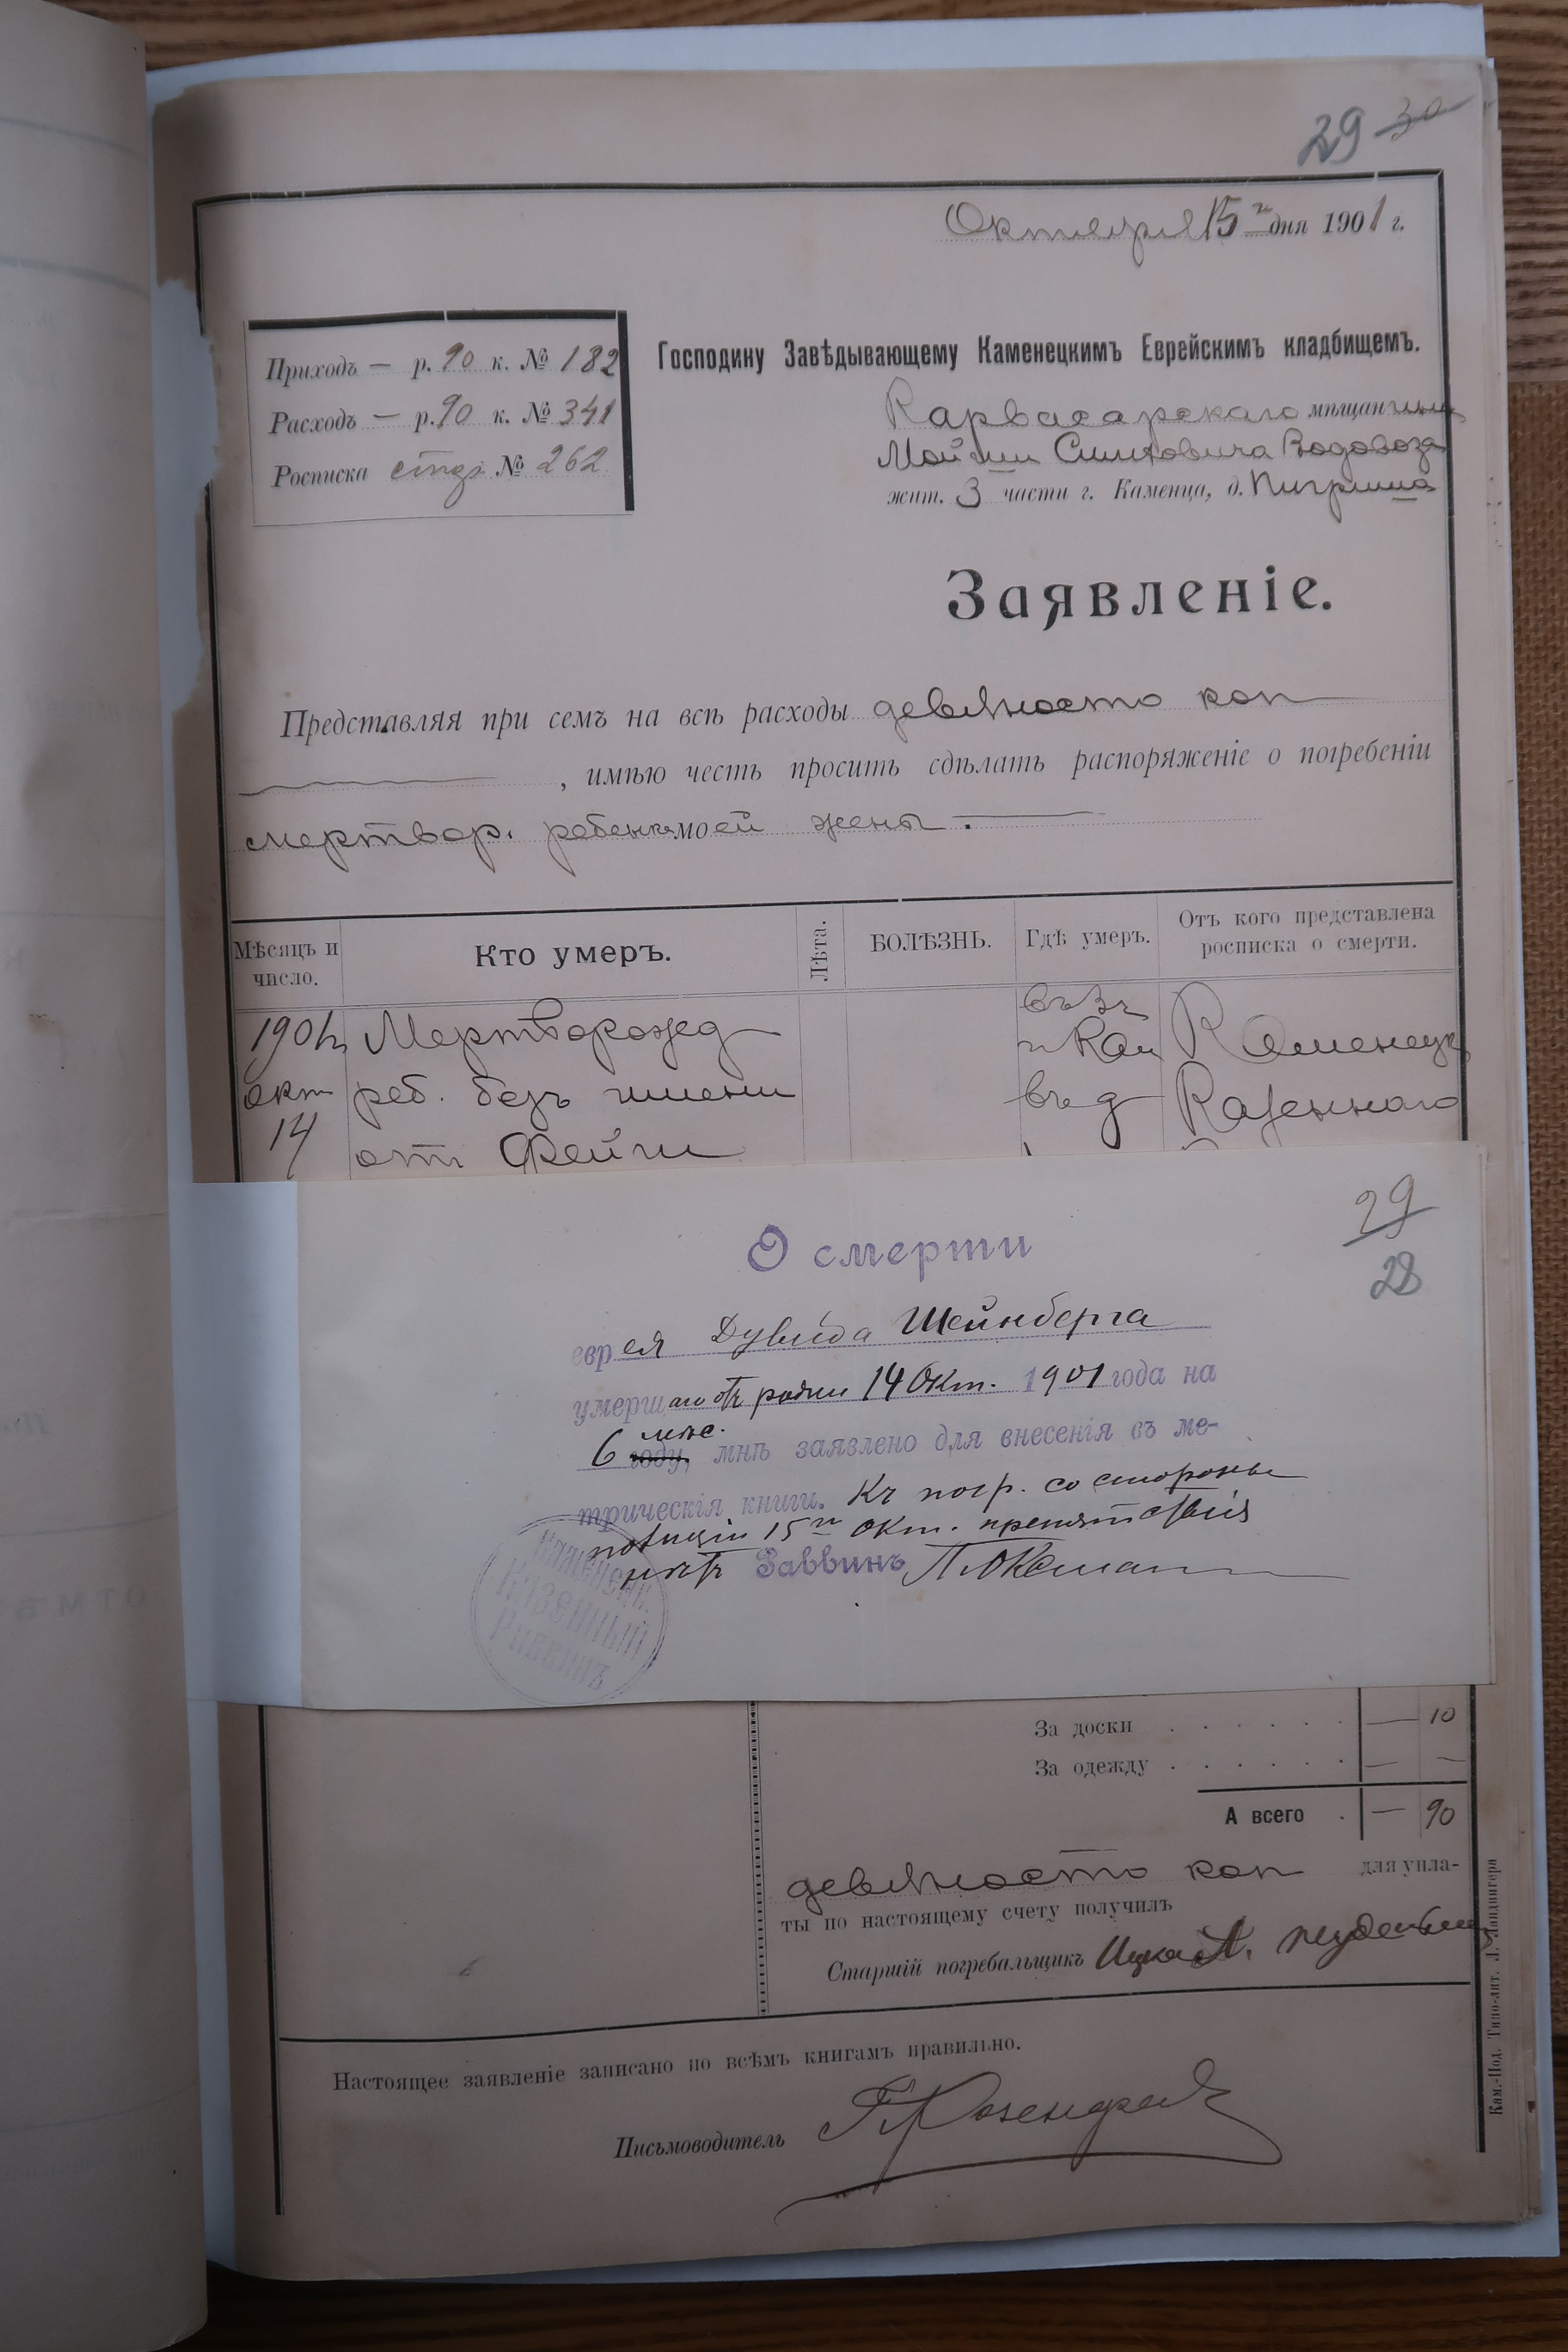 29 30
Октября 15 дня 1901 г.
Приходъ — р. 90 к. № 182
Расходъ — р. 90 к. № 341
Росписка № 262
Господину Завѣдывающему Каменецкимъ Еврейскимъ кладбищемъ.
Карвасарскаго мѣщанина
Водовоза
жит. 3 части г. Каменца, д.
Заявленіе.
Представляя при семъ на всѣ расходы девяносто коп
, имѣю честь просить сдѣлать распоряженіе о погребеніи
мертвор. ребенка моей жены.
Мѣсяцъ и число.
Кто умеръ.
Лѣта.
БОЛѢЗНЬ.
Гдѣ умеръ.
Отъ кого представлена росписка о смерти.
Мертворожд Каменецк
окт реб. безъ имени въ д Казеннаго
14 отъ Фейги
29
28
О смерти
еврея Дувида Шейнберга
умершаго 14 Окт. 1901 года на
6 мѣс. году, мнѣ заявлено для внесенія въ ме-
трическія книги. Къ погр. со стороны
полиціи 15 окт. препятствія
нѣтъ Раввинъ
Каменецк.
Казенный
Раввинъ
За доски — 10
За одежду — —
А всего — 90
девяносто коп для упла-
ты по настоящему счету получилъ
Старшій погребальщикъ
Настоящее заявленіе записано по всѣмъ книгамъ правильно.
Письмоводитель
Кам.-Под. Типо-лит. Л. Ландвигера